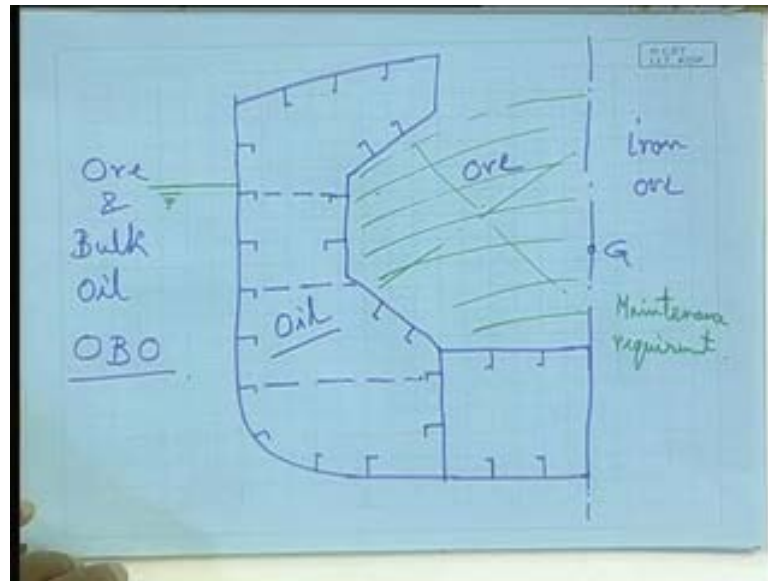 Ore
&
Bulk
Oil
OBO
Oil
Ore
iron
ore
G
Maintenana
requiremt.